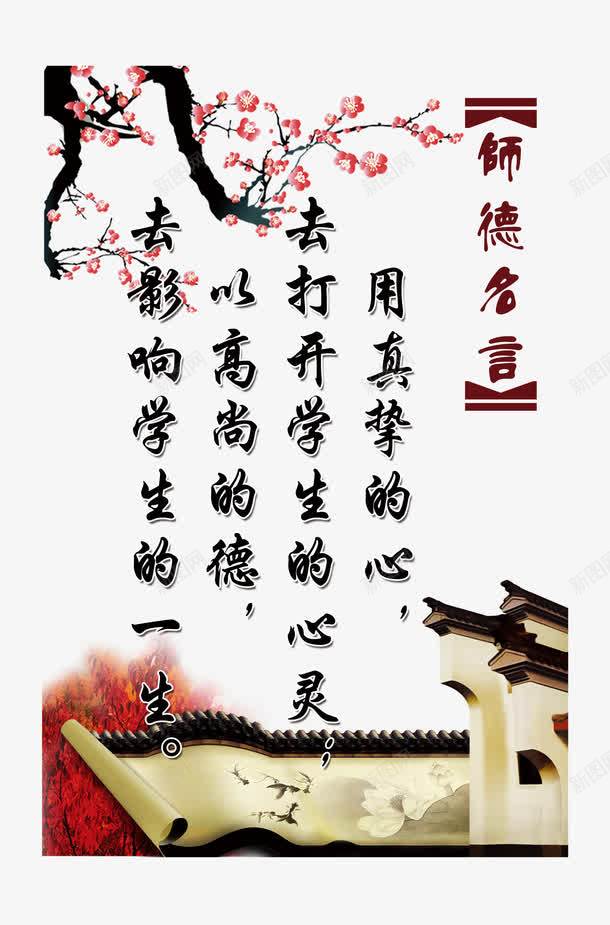 【師德名言】
用真挚的心，
去打开学生的心灵；
以高尚的德，
去影响学生的一生。
新图网